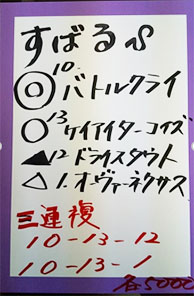 すばるS
◎10.バトルクライ
○13ケイアイターコイズ
▲12ドライスタウト
△1.オーヴァーネクサス
三連複
10-13-12
10-13-1
各5000